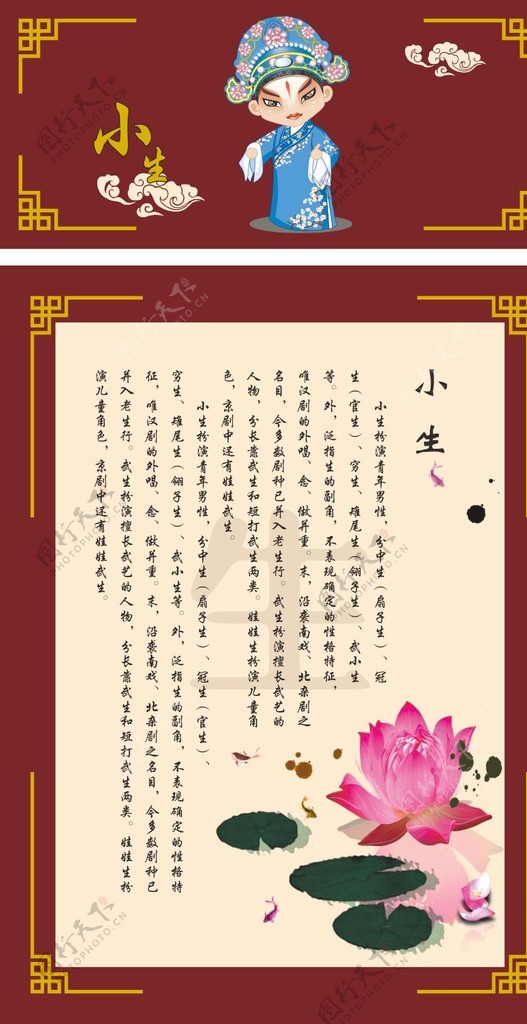 小生
小生
小生扮演青年男性，分中生（扇子生）、冠
生（官生）、穷生、雉尾生（翎子生）、武小生
等。外，泛指生的副角，不表现确定的性格特征，
唯汉剧的外唱、念、做并重。末，沿袭南戏、北杂剧之
名目，今多数剧种已并入老生行。武生扮演擅长武艺的
人物，分长靠武生和短打武生两类。娃娃生扮演儿童角
色，京剧中还有娃娃武生。
小生扮演青年男性，分中生（扇子生）、冠生（官生）、
穷生、雉尾生（翎子生）、武小生等。外，泛指生的副角，不表现确定的性格特
征，唯汉剧的外唱、念、做并重。末，沿袭南戏、北杂剧之名目，今多数剧种已
并入老生行。武生扮演擅长武艺的人物，分长靠武生和短打武生两类。娃娃生扮
演儿童角色，京剧中还有娃娃武生。
生
图行天下
PHOTOPHOTO.CN